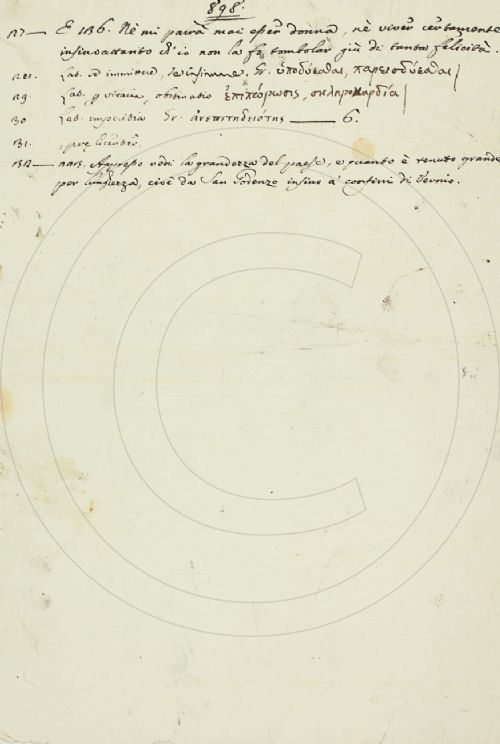 898.
127— E 136. Nè mi parrà mai esser donna, nè viver certamente
insinoattanto ch'io non la fo tombolar giù di tanta felicità.
128. Lat. se immiscere, se insinuare. Gr. ὑποδύεσθαι, παρεισδύεσθαι
129. Lat. obstinatio ἐπιπώρωσις, σκληροκαρδία
130 Lat. imperitia Gr. ἀνεπιτηδειότης — 6.
131.
132— 113. Appresso udì la grandezza del paese, e quanto è tenuto grande
per lunghezza, cioè da San Godenzo insino a' confini di Vernio.